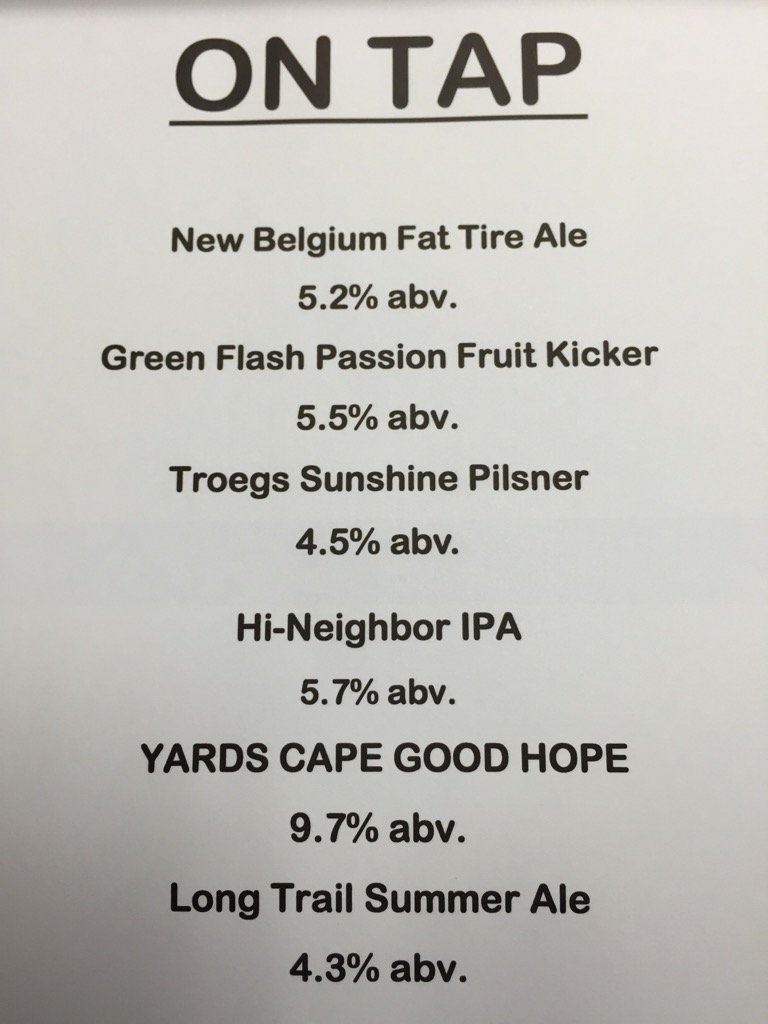 ON TAP
New Belgium Fat Tire Ale
5.2% abv.
Green Flash Passion Fruit Kicker
5.5% abv.
Troegs Sunshine Pilsner
4.5% abv.
Hi-Neighbor IPA
5.7% abv.
YARDS CAPE GOOD HOPE
9.7% abv.
Long Trail Summer Ale
4.3% abv.